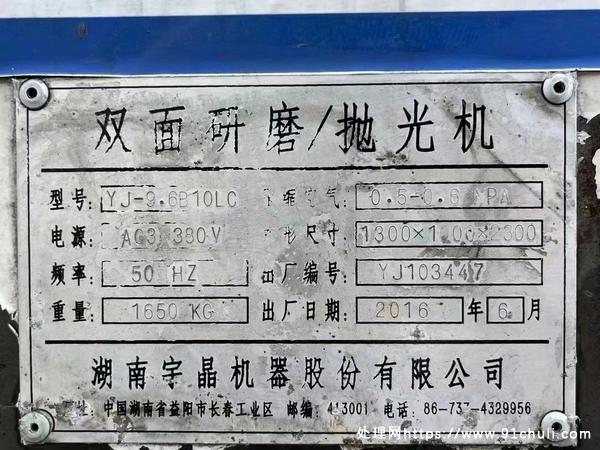 双面研磨/抛光机
型号: YJ-9.6B10LC 压缩空气: 0.5-0.6 MPA
电源: AC3 380V 外形尺寸: 1300××2300
频率: 50 HZ 出厂编号: YJ103447
重量: 1650 KG 出厂日期: 2016 年 6 月
湖南宇晶机器股份有限公司
址: 中国湖南省益阳市长春工业区 邮编: 413001 电话: 86-737-4329956
处理网https://www.91chuli.com/